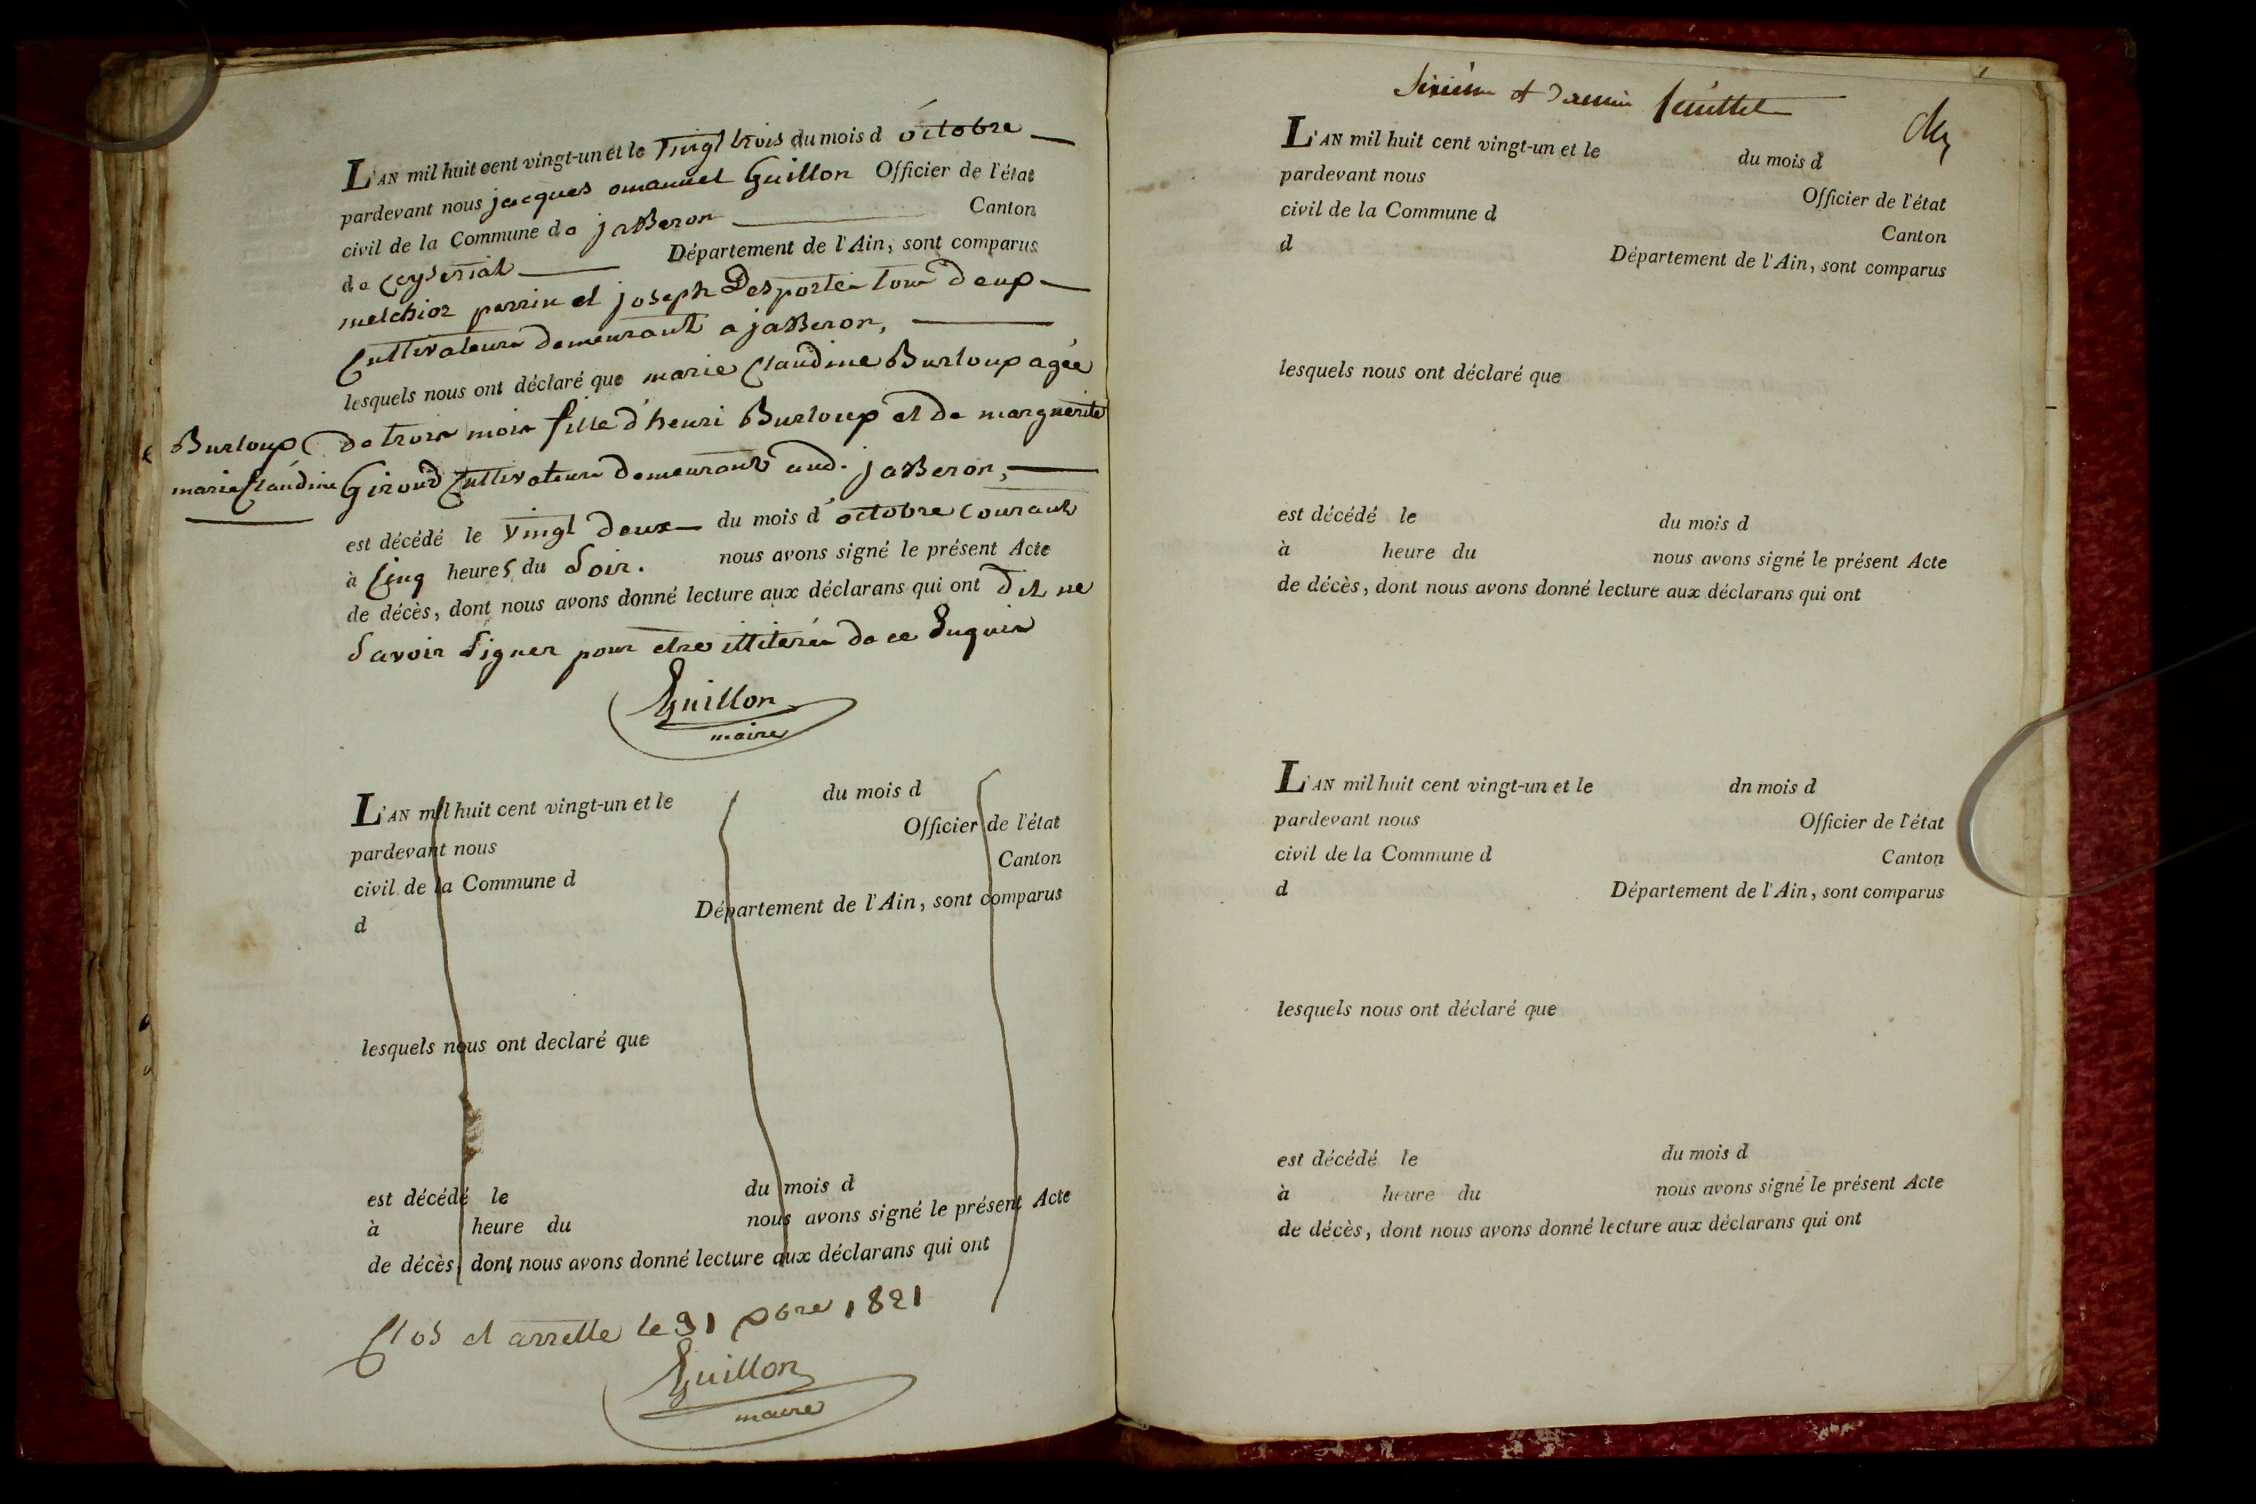 L'AN mil huit cent vingt-un et le vingt trois du mois d octobre
pardevant nous jacques omanuel Guillon Officier de l'état
civil de la Commune de jasseron Canton
de Ceyseriat Département de l'Ain, sont comparus
melchior perrin et joseph Desportes tous deux
Cultivateurs demeurant a jasseron,
lesquels nous ont déclaré que marie Claudine Burloup agée
Burloup de trois mois fille d'henri Burloup et de marguerite
marie Claudine Giroud Cultivateurs demeurant aud. jasseron,
est décédé le vingt deux du mois d'octobre Courant
à Cinq heures du Soir. nous avons signé le présent Acte
de décès, dont nous avons donné lecture aux déclarans qui ont dit ne
Savoir Signer pour etre illiterés de ce Enquis
Guillon
maire
L'AN mil huit cent vingt-un et le du mois d
pardevant nous Officier de l'état
civil de la Commune d Canton
d Département de l'Ain, sont comparus
lesquels nous ont declaré que
est décédé le du mois d
à heure du nous avons signé le présent Acte
de décès, dont nous avons donné lecture aux déclarans qui ont
Clos et arrette le 31 Xbre 1821
Guillon
maire
Sixième et dernier feuillet
L'AN mil huit cent vingt-un et le du mois d
pardevant nous Officier de l'état
civil de la Commune d Canton
d Département de l'Ain, sont comparus
lesquels nous ont déclaré que
est décédé le du mois d
à heure du nous avons signé le présent Acte
de décès, dont nous avons donné lecture aux déclarans qui ont
L'AN mil huit cent vingt-un et le dn mois d
pardevant nous Officier de l'état
civil de la Commune d Canton
d Département de l'Ain, sont comparus
lesquels nous ont déclaré que
est décédé le du mois d
à heure du nous avons signé le présent Acte
de décès, dont nous avons donné lecture aux déclarans qui ont